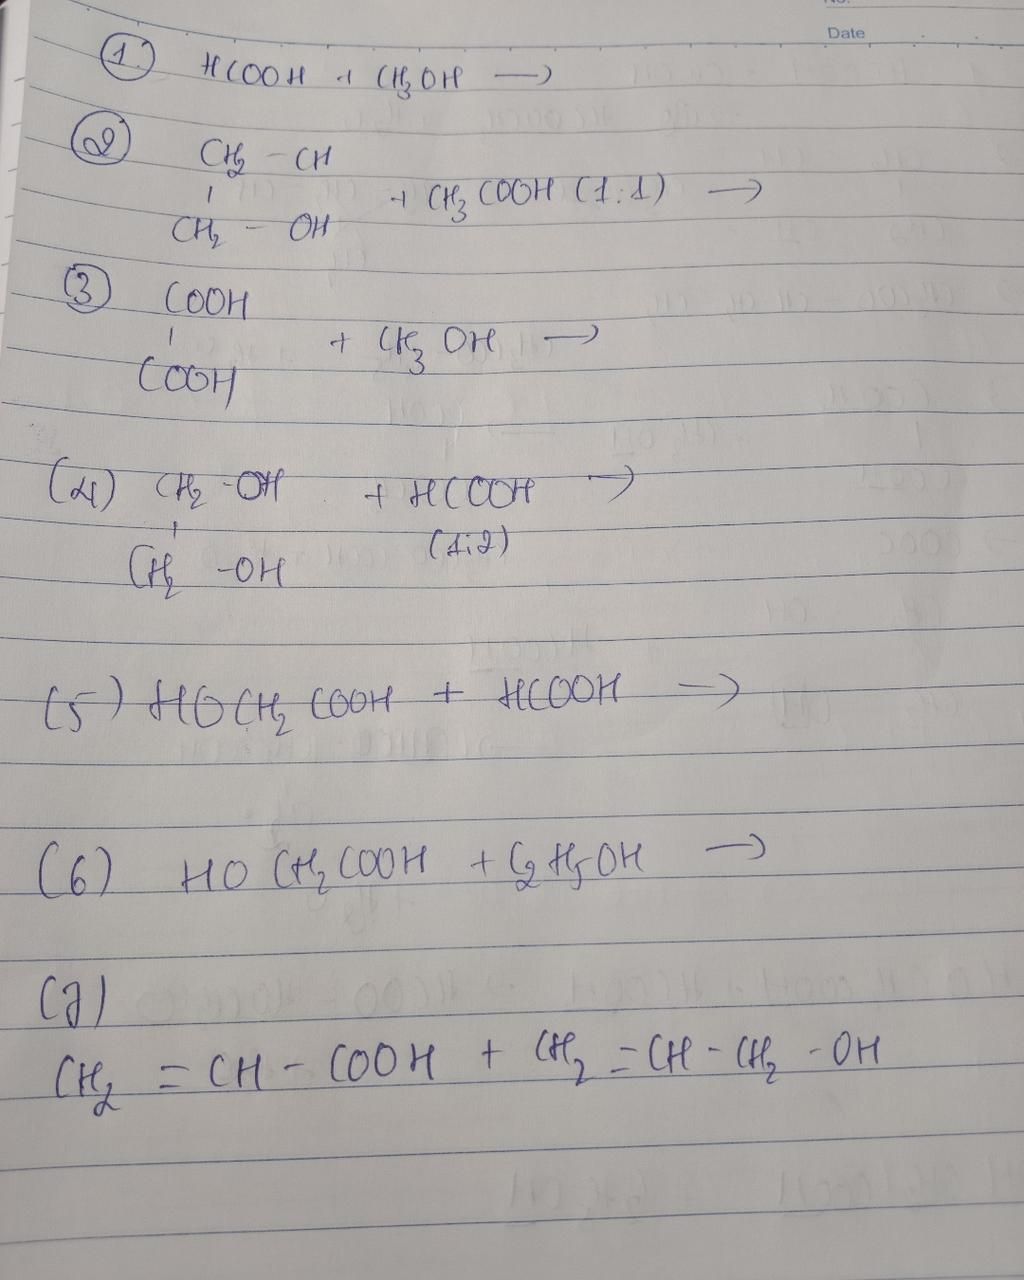 Date
1. HCOOH + CH3OH →
2 CH2 - CH
+ CH3COOH (1:1) →
CH2 - OH
3 COOH
+ CH3OH →
COOH
(4) CH2 - OH + HCOOH →
(1:2)
CH2 - OH
(5) HOCH2COOH + HCOOH →
(6) HOCH2COOH + C2H5OH →
(7)
CH2 = CH - COOH + CH2 = CH - CH2 - OH